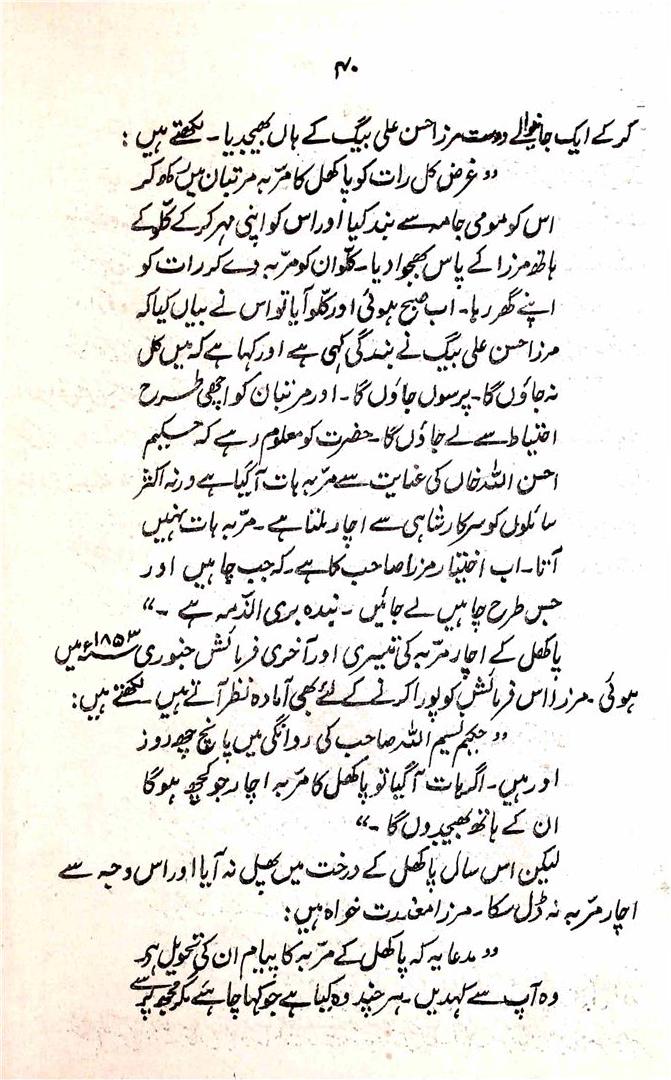 ۴۰
کر کے ایک جانیوالے دوست مرزا حسن علی بیگ کے ہاں بھیجدیا۔ لکھتے ہیں :
”غرض کل رات کو پاکھل کا مربہ مرتبان میں رکھ کر
اس کو مومی جامہ سے بند کیا اور اس کو اپنی مہر کر کے کلّو کے
ہاتھ مرزا کے پاس بھجوا دیا۔ کلّو ان کو مربہ دے کر رات کو
اپنے گھر رہا۔ اب صبح ہوئی اور کلّو آیا تو اس نے بیاں کیا کہ
مرزا حسن علی بیگ نے بندگی کہی ہے اور کہا ہے کہ میں کل
نہ جاؤں گا۔ پرسوں جاؤں گا۔ اور مرتبان کو اچھی طرح
احتیاط سے لے جاؤں گا۔ حضرت کو معلوم رہے کہ حکیم
احسن اللہ خاں کی عنایت سے مربہ ہات آگیا ہے ورنہ اکثر
سائلوں کو سرکار شاہی سے اچار ملتا ہے۔ مربہ ہات نہیں
آتا۔ اب اختیار مرزا صاحب کا ہے۔ کہ جب چاہیں اور
جس طرح چاہیں لے جائیں۔ بندہ بری الذّمہ ہے ۔“
پاکھل کے اچار مربہ کی تیسری اور آخری فرمائش جنوری ۱۸۵۳ء میں
ہوئی۔ مرزا اس فرمائش کو پورا کرنے کے لئے بھی آمادہ نظر آتے ہیں لکھتے ہیں :
”حکیم تسیم اللہ صاحب کی روانگی میں پانچ چھ روز
اور ہیں۔ اگر ہات آگیا تو پاکھل کا مربہ اچار جو کچھ ہوگا
ان کے ہاتھ بھیجدوں گا ۔“
لیکن اس سال پاکھل کے درخت میں پھل نہ آیا اور اس وجہ سے
اچار مربہ نہ ڈل سکا۔ مرزا معذرت خواہ ہیں :
”مدعا یہ کہ پاکھل کے مربہ کا پیام ان کی تحویل ہے۔
وہ آپ سے کہدیں۔ ہر چند وہ کیا ہے جو کہا چاہئے مگر مجھ پر سے